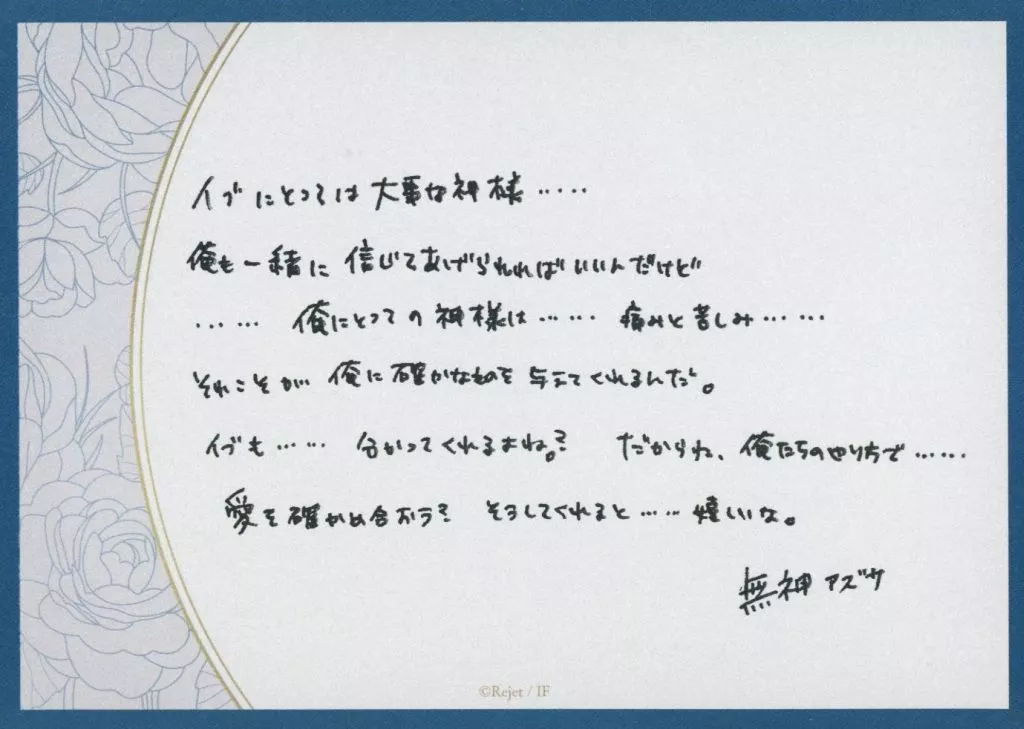 イブにとっては大事な神様‥‥‥
俺も一緒に信じてあげられればいいんだけど
‥‥‥ 俺にとっての神様は‥‥‥ 痛みと苦しみ‥‥‥
それこそが 俺に確かなものを与えてくれるんだ。
イブも‥‥‥ 分かってくれるよね。? だからね、俺たちのやり方で‥‥‥
愛を確かめ合おう? そうしてくれると‥‥‥嬉しいな。
無神アズサ
©Rejet / IF